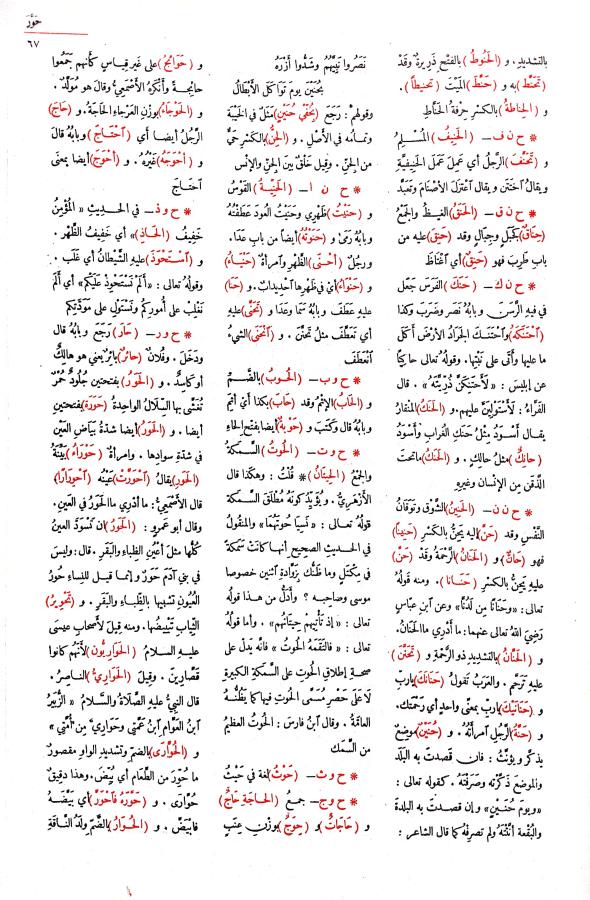 حَوَرَ
٦٧
بالتشديد. و (الحَنُوطُ) بالفتح ذَرِيرةٌ وقَدْ
(تَحَنَّطَ) به و (حَنَّطَ) الميّتَ (تحنيطاً).
و (الحِناطةُ) بالكسرِ حِرفَةُ الحَنَّاطِ
* ح ن ف – (الحَنِيفُ) المُسْلِمُ
و (تَحَنَّفَ) الرَّجُلُ أي عَمِلَ عَمَلَ الحَنِيفِيَّةِ
ويقالُ اخْتَتَن ويقال اعتَزَلَ الأصنامَ وتعبَّدَ
* ح ن ق – (الحَنَقُ) الغيظُ والجَمْعُ
(حِناقٌ) كجَبَلٍ وجِبالٍ وقد (حَنِقَ) عليه من
باب طَرِبَ فهو (حَنِقٌ) أي اغْتَاظَ
* ح ن ك – (حَنَكَ) الفَرَسَ جَعَل
في فيهِ الرَّسَنَ وبابُهُ نَصَر وضَرَبَ وكذا
(احْتَنَكَهُ) واحْتَنَكَ الجَرَادُ الأرضَ أَكَلَ
ما عليها وأتَى على نَبْتِها. وقولُهُ تعالى حاكيًا
عن إبليسَ: « لَأَحْتَنِكَنَّ ذُرِّيَّتَهُ » . قال
الفَرَّاءُ : لَأَسْتَوْلِيَنَّ عليهم. و (الحَنَكُ) المِنْقَارُ
يقالُ أسْوَدُ مِثْلُ حَنَكِ الغرابِ وأَسْوَدُ
(حانِكٌ) مثلُ حالِكٍ. و (الحَنَكُ) ماتحتَ
الذَّقَنِ مِن الإنسان وغيرِهِ
* ح ن ن – (الحَنِينُ) الشَّوْقُ وتَوَقَانُ
النَّفْسِ وقد (حَنَّ) إليه يَحِنُّ بالكسرِ (حَنِيناً)
فهو (حانٌّ) و (الحَنَانُ) الرَّحْمَةُ وقد (حَنَّ)
عليهِ يَحِنُّ بالكسرِ (حَنَانا) . ومنه قولُهُ
تعالى: «وَحَنَانًا مِنْ لَدُنَّا» وعن ابنِ عبّاسٍ
رَضِيَ اللهُ تعالى عنهما: ما أدْرِي ماالحَنَانُ.
و (الحَنَّانُ) بالتشديدِ ذو الرَّحْمةِ و (تَحَنَّنَ)
عليهِ تَرَحَّمَ. والعَرَبُ تَقُولُ (حَنَانَكَ) ياربِّ
و (حَنَانَيْكَ) ياربِّ بمعنًى واحدٍ أي رَحْمَتَكَ.
و (حَنَّةُ) الرَّجُلِ امرأتُهُ . و (حُنَيْنٌ) موضعٌ
يذكَّرُ ويؤنَّثُ : فان قصدتَ بهِ البَلَدَ
والموضعَ ذَكَّرْتَهُ وصَرَفْتَهُ . كقوله تعالى :
«ويومَ حُنَيْنٍ» وإن قصدتَ بهِ البلدةَ
والبُقْعةَ أنَّثْتَهُ ولم تصرِفْهُ كما قال الشاعر :
نَصَرُوا نَبِيَّهُمُ وشَدُّوا أَزْرَهُ
بحُنَيْنَ يومَ تَوَاكُلِ الأَبْطَالِ
وقولُهم: رَجَعَ (بخُفَّيْ حُنَيْنٍ) مَثَلٌ في الخَيْبَةِ
وتمامُه في الأصل. و (الحِنُّ) بالكسرِ حَيٌّ
من الجنِّ. وقيل خَلْقٌ بينَ الجنِّ والإنس
* ح ن ا – (الحَنِيَّةُ) القَوْسُ
و (حَنَيْتُ) ظَهْرِي وحَنَيْتُ العُودَ عَطَفْتُهُ
وبابُهُ رَمَى و (حَنَوْتُهُ) أيضا من بابِ عَدَا.
ورجُلٌ (أَحْنَى) الظَّهْرِ وامرأةٌ (حَنْيَاءُ)
و (حَنْوَاءُ) أي في ظهرِها احديدابٌ. و (حَنَا)
عليهِ عَطَفَ وبابُهُ سَمَا وعَدَا و (تَحَنَّى) عليهِ
أي تَعَطَّفَ مثلُ تَحَنَّنَ. و (انْحَنَى) الشيءُ
انْعَطَفَ
* ح و ب – (الحُوبُ) بالضَّمِّ
و (الحَابُ) الإثمُ وقد (حَابَ) بكذا أي أَثِمَ
وبابُهُ قال وكَتَبَ و (حَوْبَةً) أيضا بفتحِ الحاءِ
* ح و ت – (الحُوتُ) السَّمَكةُ
والجمعُ (الحِيتَانُ) * قُلْتُ : وهكذا قال
الأزْهَرِيُّ. ويُؤَيِّدُ كونَهُ مُطلَقَ السَّمَكةِ
قولُهُ تعالى: « نَسِيَا حُوتَهُمَا » والمنقُولُ
في الحديثِ الصحيحِ أنها كانتْ سَمَكةً
في مِكْتَلٍ وما ظَنُّك بزَوَّادةِ اثنين خصوصا
موسى وصاحبِه ؟ وأدَلُّ من هذا قولُهُ
تعالى: « إذ تأتِيهِمْ حِيتَانُهُمْ » . وأما قولُهُ
تعالى: « فالْتَقَمَهُ الحُوتُ » فإنَّه يدُلُّ على
صحةِ إطلاقِ الحُوتِ على السَّمكةِ الكبيرةِ
لا عَلَى حَصْرِ مُسَمَّى الحُوتِ فيها كما يَظُنُّه
العامَّةُ . وقال ابنُ فارسٍ: الحُوتُ العظيمُ
من السَّمَك
* ح و ث – (حَوْثُ) لغةٌ في حَيْثُ
* ح و ج – جمعُ (الحاجَةِ حَاجٌ)
و (حَاجَاتٌ) و (حِوَجٌ) بوزنِ عِنَبٍ
و (حَوَائِجُ) على غيرِ قياسٍ كأنهم جَمَعُوا
حائجةً وأنكَرَهُ الأَصْمَعِيُّ وقال هو مُوَلَّدٌ .
و (الحَوْجَاءُ) بوزنِ العَرْجاءِ الحَاجَةُ. و (حَاجَ)
الرَّجُلُ أيضا أي (احْتَاجَ) وبابُهُ قال
و (أَحْوَجَهُ) غيرُهُ . و (أَحْوَجَ) أيضا بمعنى
احتاجَ
* ح و ذ – في الحديث « المُؤْمِنُ
خَفِيفُ (الحَاذِ) » أي خَفِيفُ الظَّهْرِ .
و (اسْتَحْوَذَ) عليهِ الشَّيْطَانُ أي غَلَب .
وقولُهُ تعالى: « أَلَمْ نَسْتَحْوِذْ عَلَيْكُمْ » أي أَلَمْ
نَغْلِبْ على أُمُورِكُمْ ونَسْتَوْلِ على مَوَدَّتِكم
* ح و ر – (حَارَ) رَجَعَ وبابُهُ قال
ودَخَلَ . وفُلَانٌ (حائرٌ) بائرٌ يعني هو هالكٌ
أو كاسدٌ . و (الحَوَرُ) بفتحتين جلُودٌ حُمْرٌ
تُغَشَّى بها السِّلالُ الواحدةُ (حَوَرَةٌ) بفتحتين
أيضا . و (الحَوَرُ) أيضا شدّةُ بَيَاضِ العَيْنِ
في شدّةِ سوادِها. وامرأةٌ (حَوْرَاءُ) بَيِّنَةُ
(الحَوَرِ) يقالُ (احْوَرَّتْ) عَيْنُهُ (احْوِرَارًا)
قال الأصْمَعِيُّ: ما أدرِي ماالحَوَرُ في العَيْنِ .
وقال أبو عمرٍو : (الحَوَرُ) أن تَسْوَدَّ العينُ
كلُّها مثلَ أعْيُنِ الظِّباءِ والبَقَرِ . قال : وليسَ
في بني آدَمَ حَوَرٌ وإنما قيل للنساءِ حُورُ
العُيُونِ تشبيهًا بالظِّباءِ والبَقَرِ . و (تَحْوِيرُ)
الثِّيابِ تَبْيِيضُها . ومنه قيلَ لأصحاب عيسى
عليهِ السلامُ (الحَوَارِيُّون) لأنهم كانوا
قَصَّارين . وقيل (الحَوَارِيُّ) الناصرُ .
قال النبيُّ عليهِ الصَّلاةُ والسَّلامُ « الزُّبَيْرُ
ابنُ العَوَّامِ ابنُ عَمَّتِي وحَوَارِيَّ مِنْ أُمَّتِي »
و (الحُوَّارَى) بالضمِّ وتشديدِ الواوِ مقصورٌ
ما حُوِّرَ من الطَّعامِ أي بُيِّضَ. وهذا دقيقٌ
حُوَّارَى . و (حَوَّرَهُ فَاحْوَرَّ) أي بَيَّضَهُ
فابْيَضَّ . و (الحُوَارُ) بالضمِّ ولَدُ النَّاقَةِ